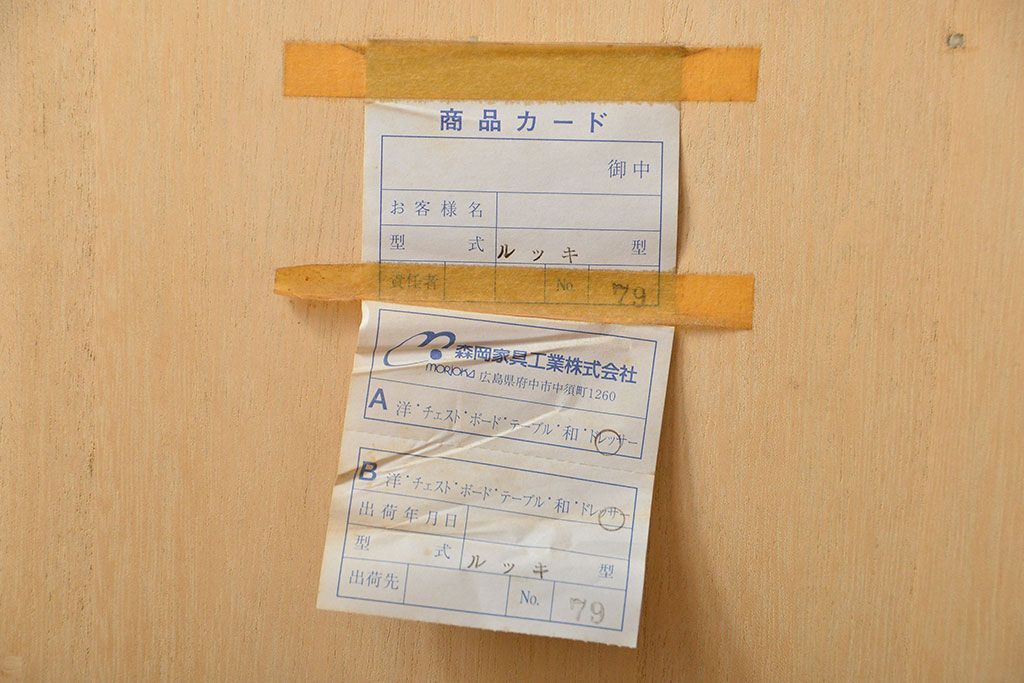 商品カード
御中
お客様名
型式 ルッキ 型
責任者 No. 79
森岡家具工業株式会社
MORIOKA 広島県府中市中須町1260
A 洋・チェスト・ボード・テーブル・和・ドレッサー
B 洋・チェスト・ボード・テーブル・和・ドレッサー
出荷年月日
型式 ルッキ 型
出荷先 No. 79